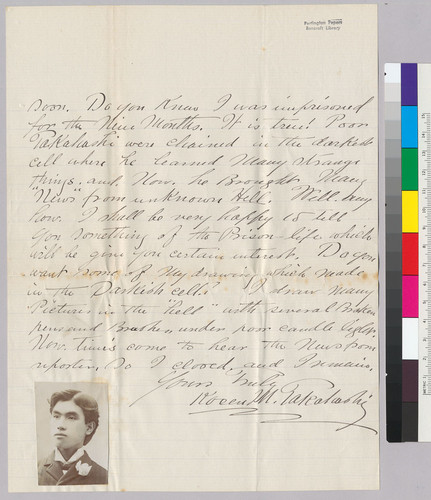 Partington Papers
Bancroft Library
soon. Do you Know I was imprisoned
for the Nine Months. It is true! Poor
Takahashi were chained in the darkest
cell where he learned Many strange
things. and Now, he Brought Many
"News" from unknown Hell. Well. any
how. I shall be very happy to tell
you something of the Prison-life which
will be give you certain interest. Do you
want some of My drawing which made
in the Darkish cells? I draw many
Pictures in the "Hell" with several Broken
pens and Brushes, under poor candle light.
Now. time's come to hear the News from
reporter, So I closed, and I remains,
Yours Truly
M. Takahashi